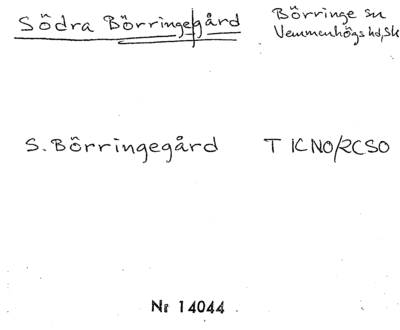 Södra Börringegård
Börringe sn
Vemmenhögs hd, Sk
S. Börringegård T ICNO/RCSO
Nr 14044